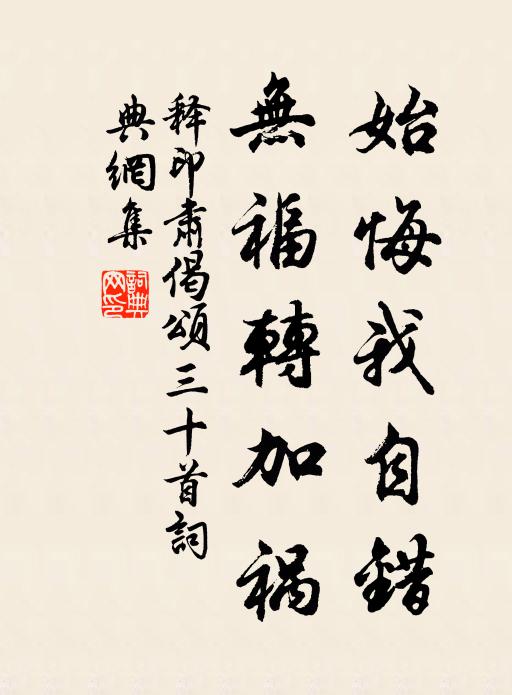 始悔我自錯
無福轉加禍
释印肃偈頌三十首詞
典網集
詞典網印